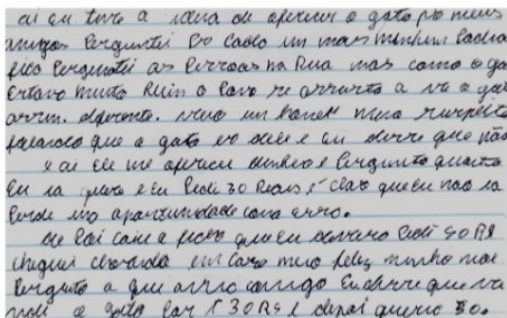 ai eu tive a ideia de oferecer o gato pro meus
amigos Perguntei Po um mas nenhum Podia
fica Perguntei as Pessoas na Rua mas como o ga
Estava muito Ruim o Povo se a ve o gat
assim. diferente. veio um homem meio suspeito
falando que o gato era dele e Eu disse que não
e ai Ele me ofereceu dinheiro e Pergunto quanto
Eu ia quere e Eu Pedi 30 Reais é claro que Eu não ia
Perde uma apartunidade como essa.
Me Pai caiu a ficha que Eu devera Pedi 50 R$
cheguei chorando em Casa meio feliz minha mae
Pergunto a que ouvio comigo Eu disse que ve
ndi o gato Por 30 R$ e depois queria 50.